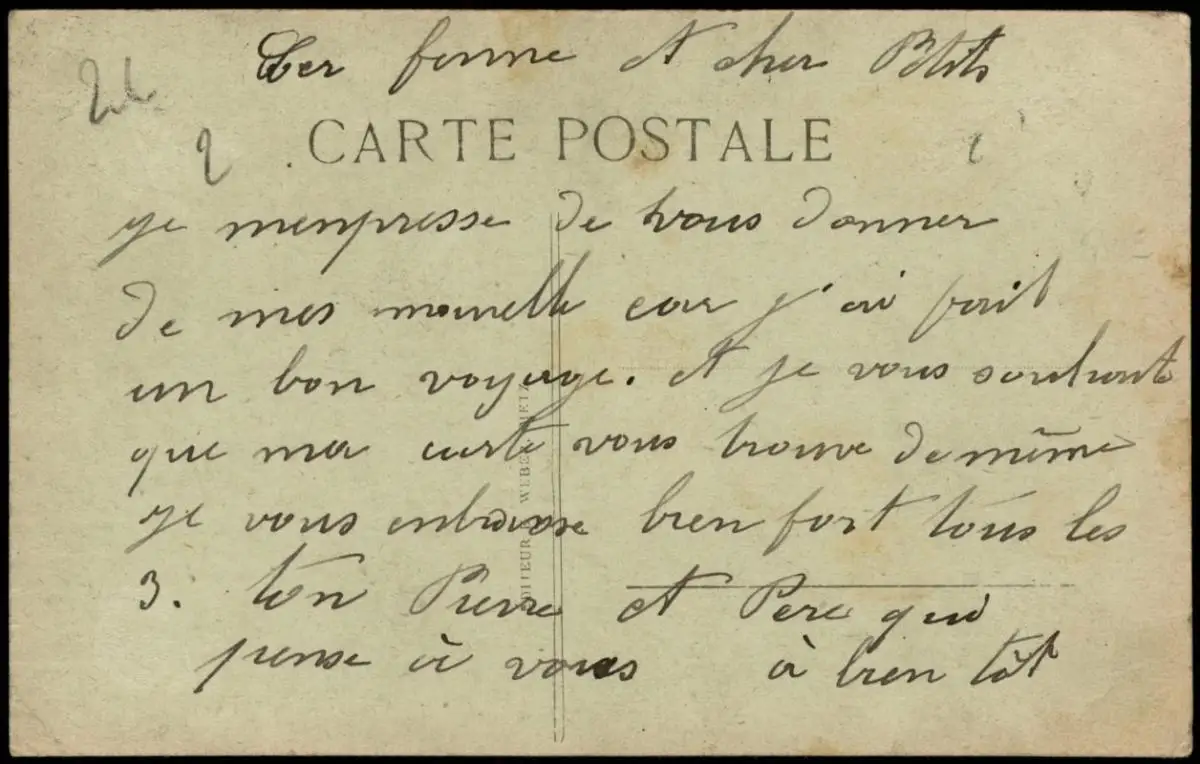 Cer fenme et cher Ptits
22
2
CARTE POSTALE
je menpresse de vous donner
de mes nouvelle car j'ai fait
un bon voyage. et je vous souhaite
que ma carte vous trouve de même
je vous enbrasse bien fort tous les
3. ton Pierre et Pere qui
pense à vous à bien tôt
EDITEUR WEBER METZ